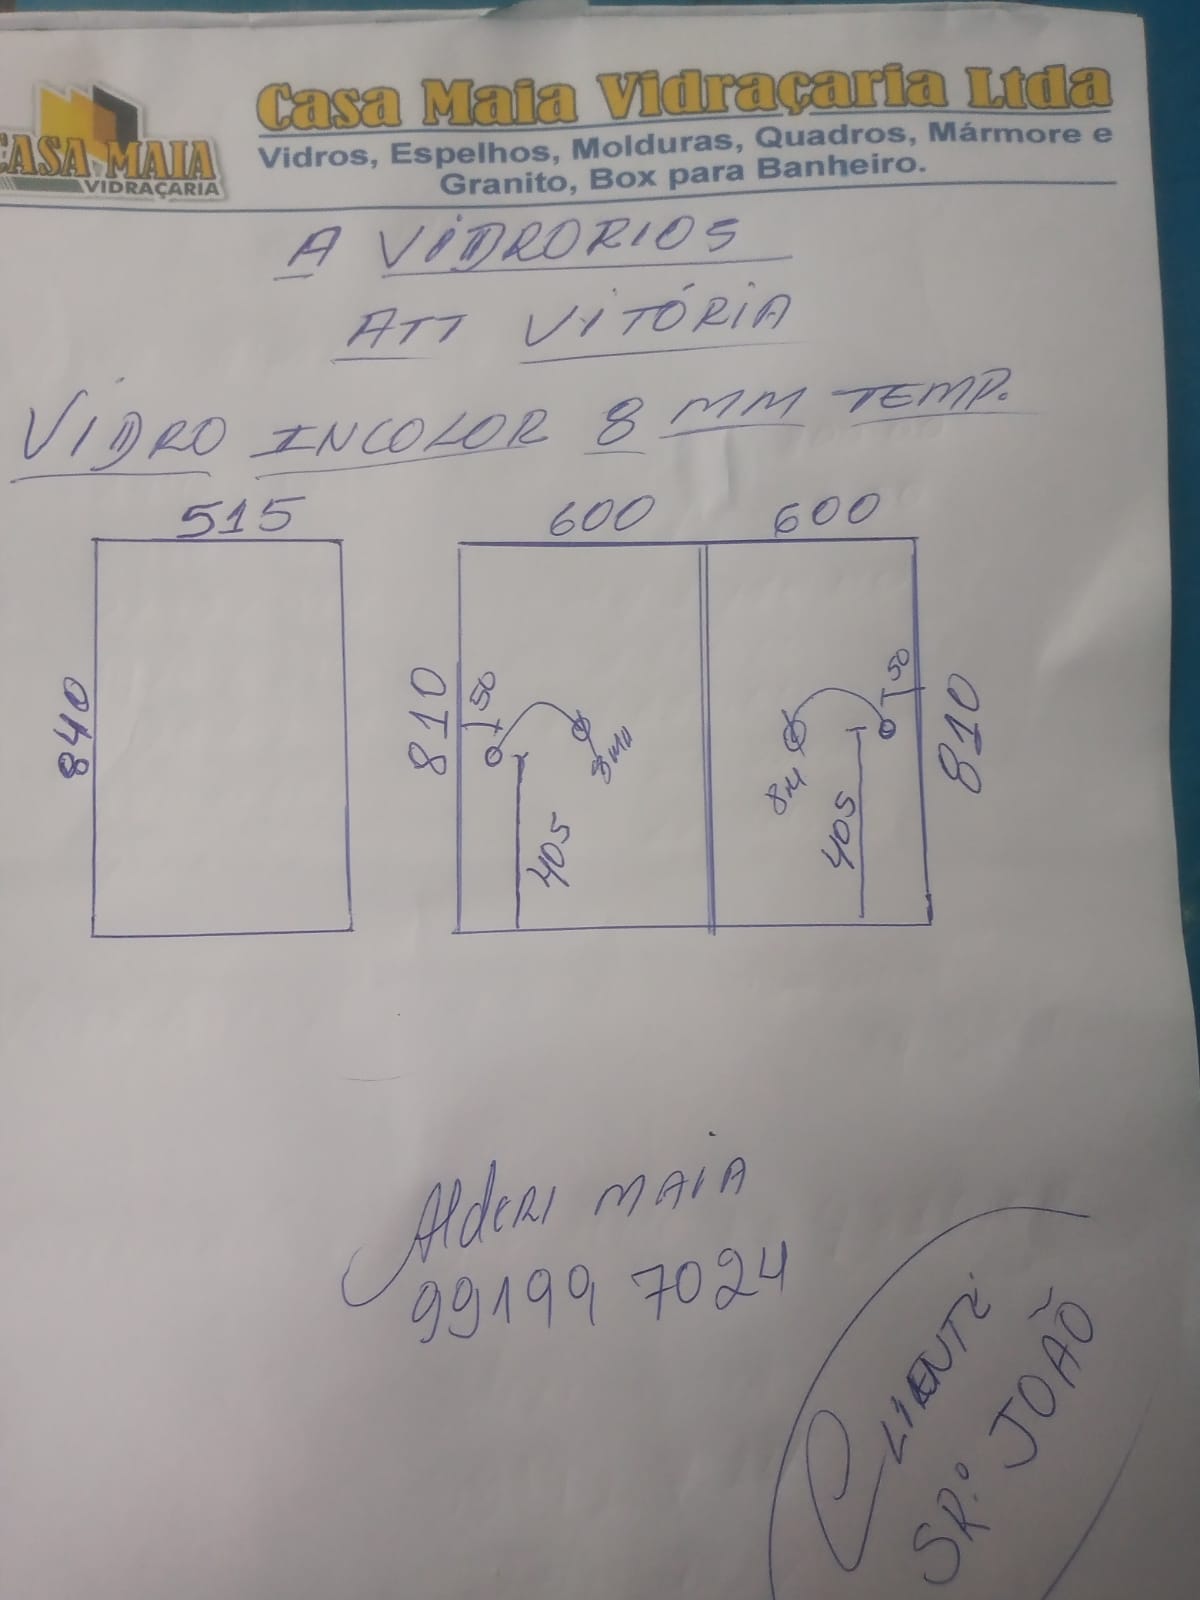 CASA MAIA
VIDRAÇARIA
Casa Maia Vidraçaria Ltda
Vidros, Espelhos, Molduras, Quadros, Mármore e
Granito, Box para Banheiro.
A VIDRORIOS
ATT VITÓRIA
VIDRO INCOLOR 8 MM TEMP.
515
600
600
840
810
50
8MM
405
50
8M
405
810
Alderi MAIA
99199 7024
CLIENTE
SR.º JOÃO